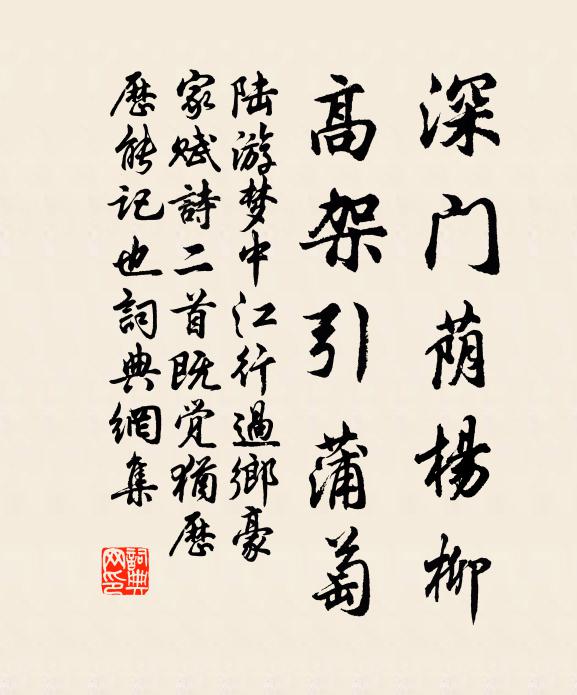 深门荫杨柳
高架引蒲萄
陆游梦中江行過鄉豪
家赋詩二首既觉猶歷
歷能记也詞典網集
詞典网印